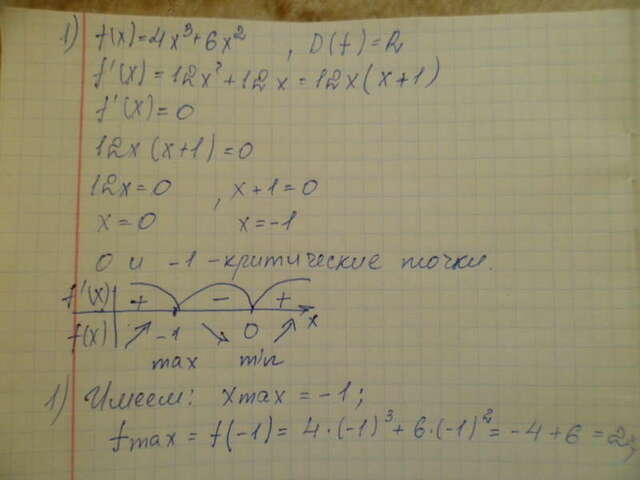 1) f(x)=4x³+6x² , D(f)=R
f'(x)=12x²+12x=12x(x+1)
f'(x)=0
12x(x+1)=0
12x=0 , x+1=0
x=0 x=-1
0 и -1 -критические точки.
f'(x) + - + 
f(x) ↗ -1 ↘ 0 ↗ x
max min
1) Имеем: xmax = -1;
fmax = f(-1) = 4·(-1)³+6·(-1)²=-4+6=2;